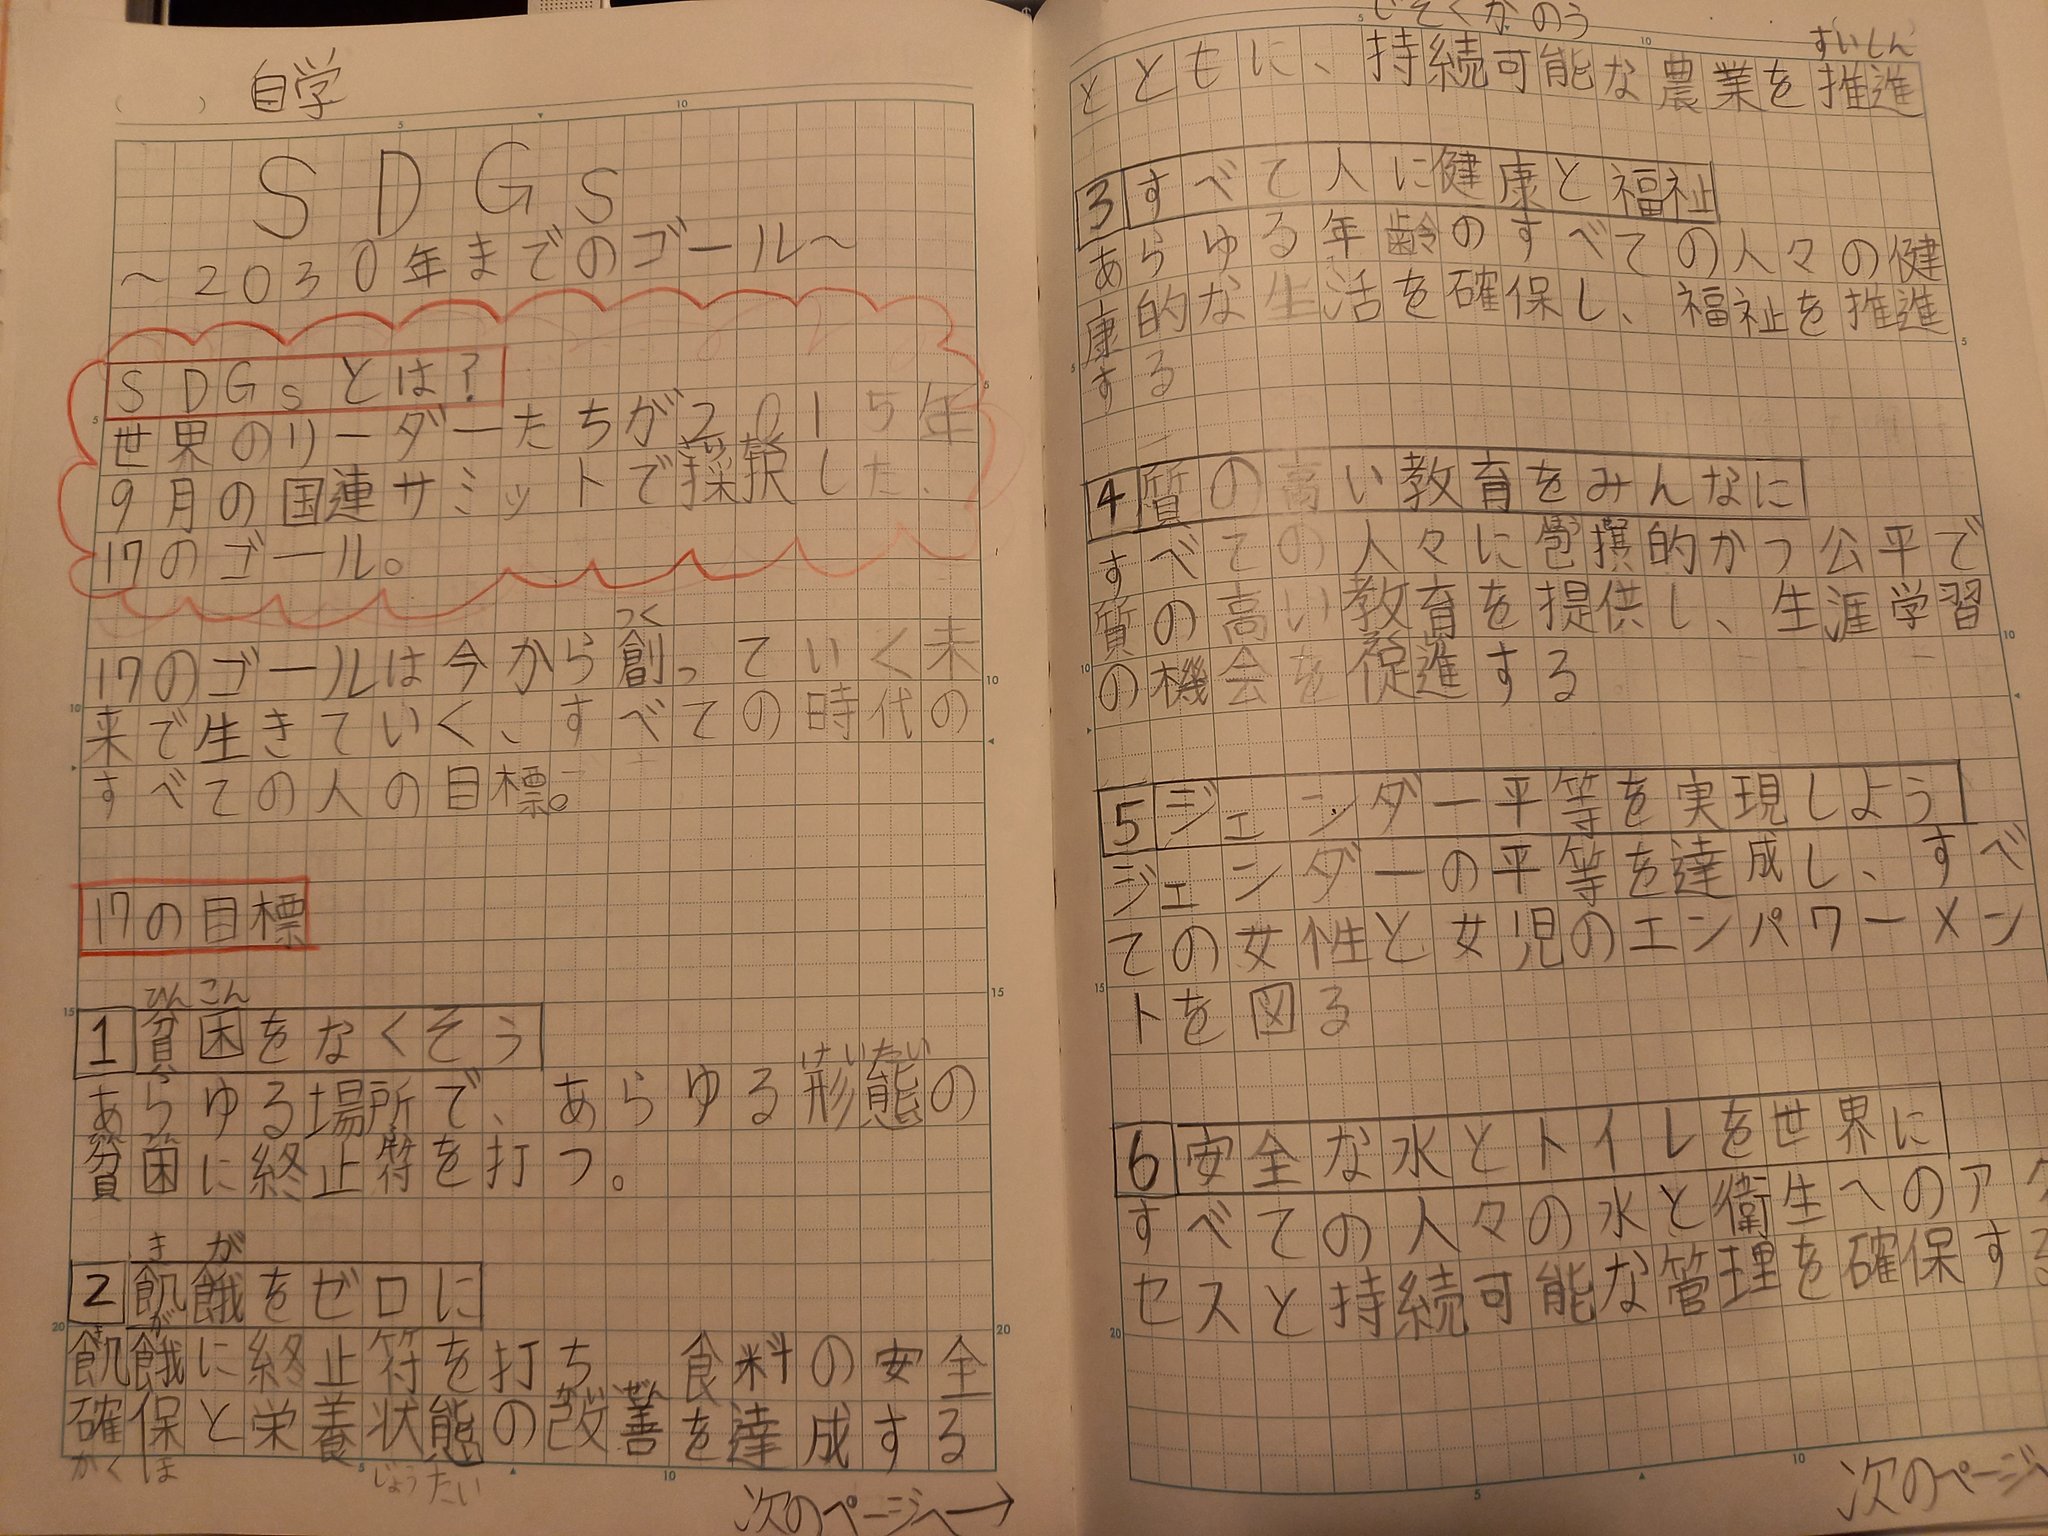 自学
SDGs
～2030年までのゴール～
SDGsとは?
世界のリーダーたちが2015年
9月の国連サミットで採択した、
17のゴール。
つく
17のゴールは今から創っていく未
来で生きていく、すべての時代の
すべての人の目標。
17の目標
ひんこん
1 貧困をなくそう
けいたい
あらゆる場所で、あらゆる形態の
貧困に終止符を打つ。
きが
2 飢餓をゼロに
きが
飢餓に終止符を打ち 食料の安全
かいぜん
確保と栄養状態の改善を達成する
かくほ じょうたい
次のページへ→
じぞくかのう すいしん
とともに、持続可能な農業を推進
3 すべて人に健康と福祉
あらゆる年齢のすべての人々の健
康的な生活を確保し、福祉を推進
する
4 質の高い教育をみんなに
すべての人々に包摂的かつ公平で
質の高い教育を提供し、生涯学習
の機会を促進する
5 ジェンダー平等を実現しよう
ジェンダーの平等を達成し、すべ
ての女性と女児のエンパワーメン
トを図る
6 安全な水とトイレを世界に
すべての人々の水と衛生へのアク
セスと持続可能な管理を確保する
次のページへ